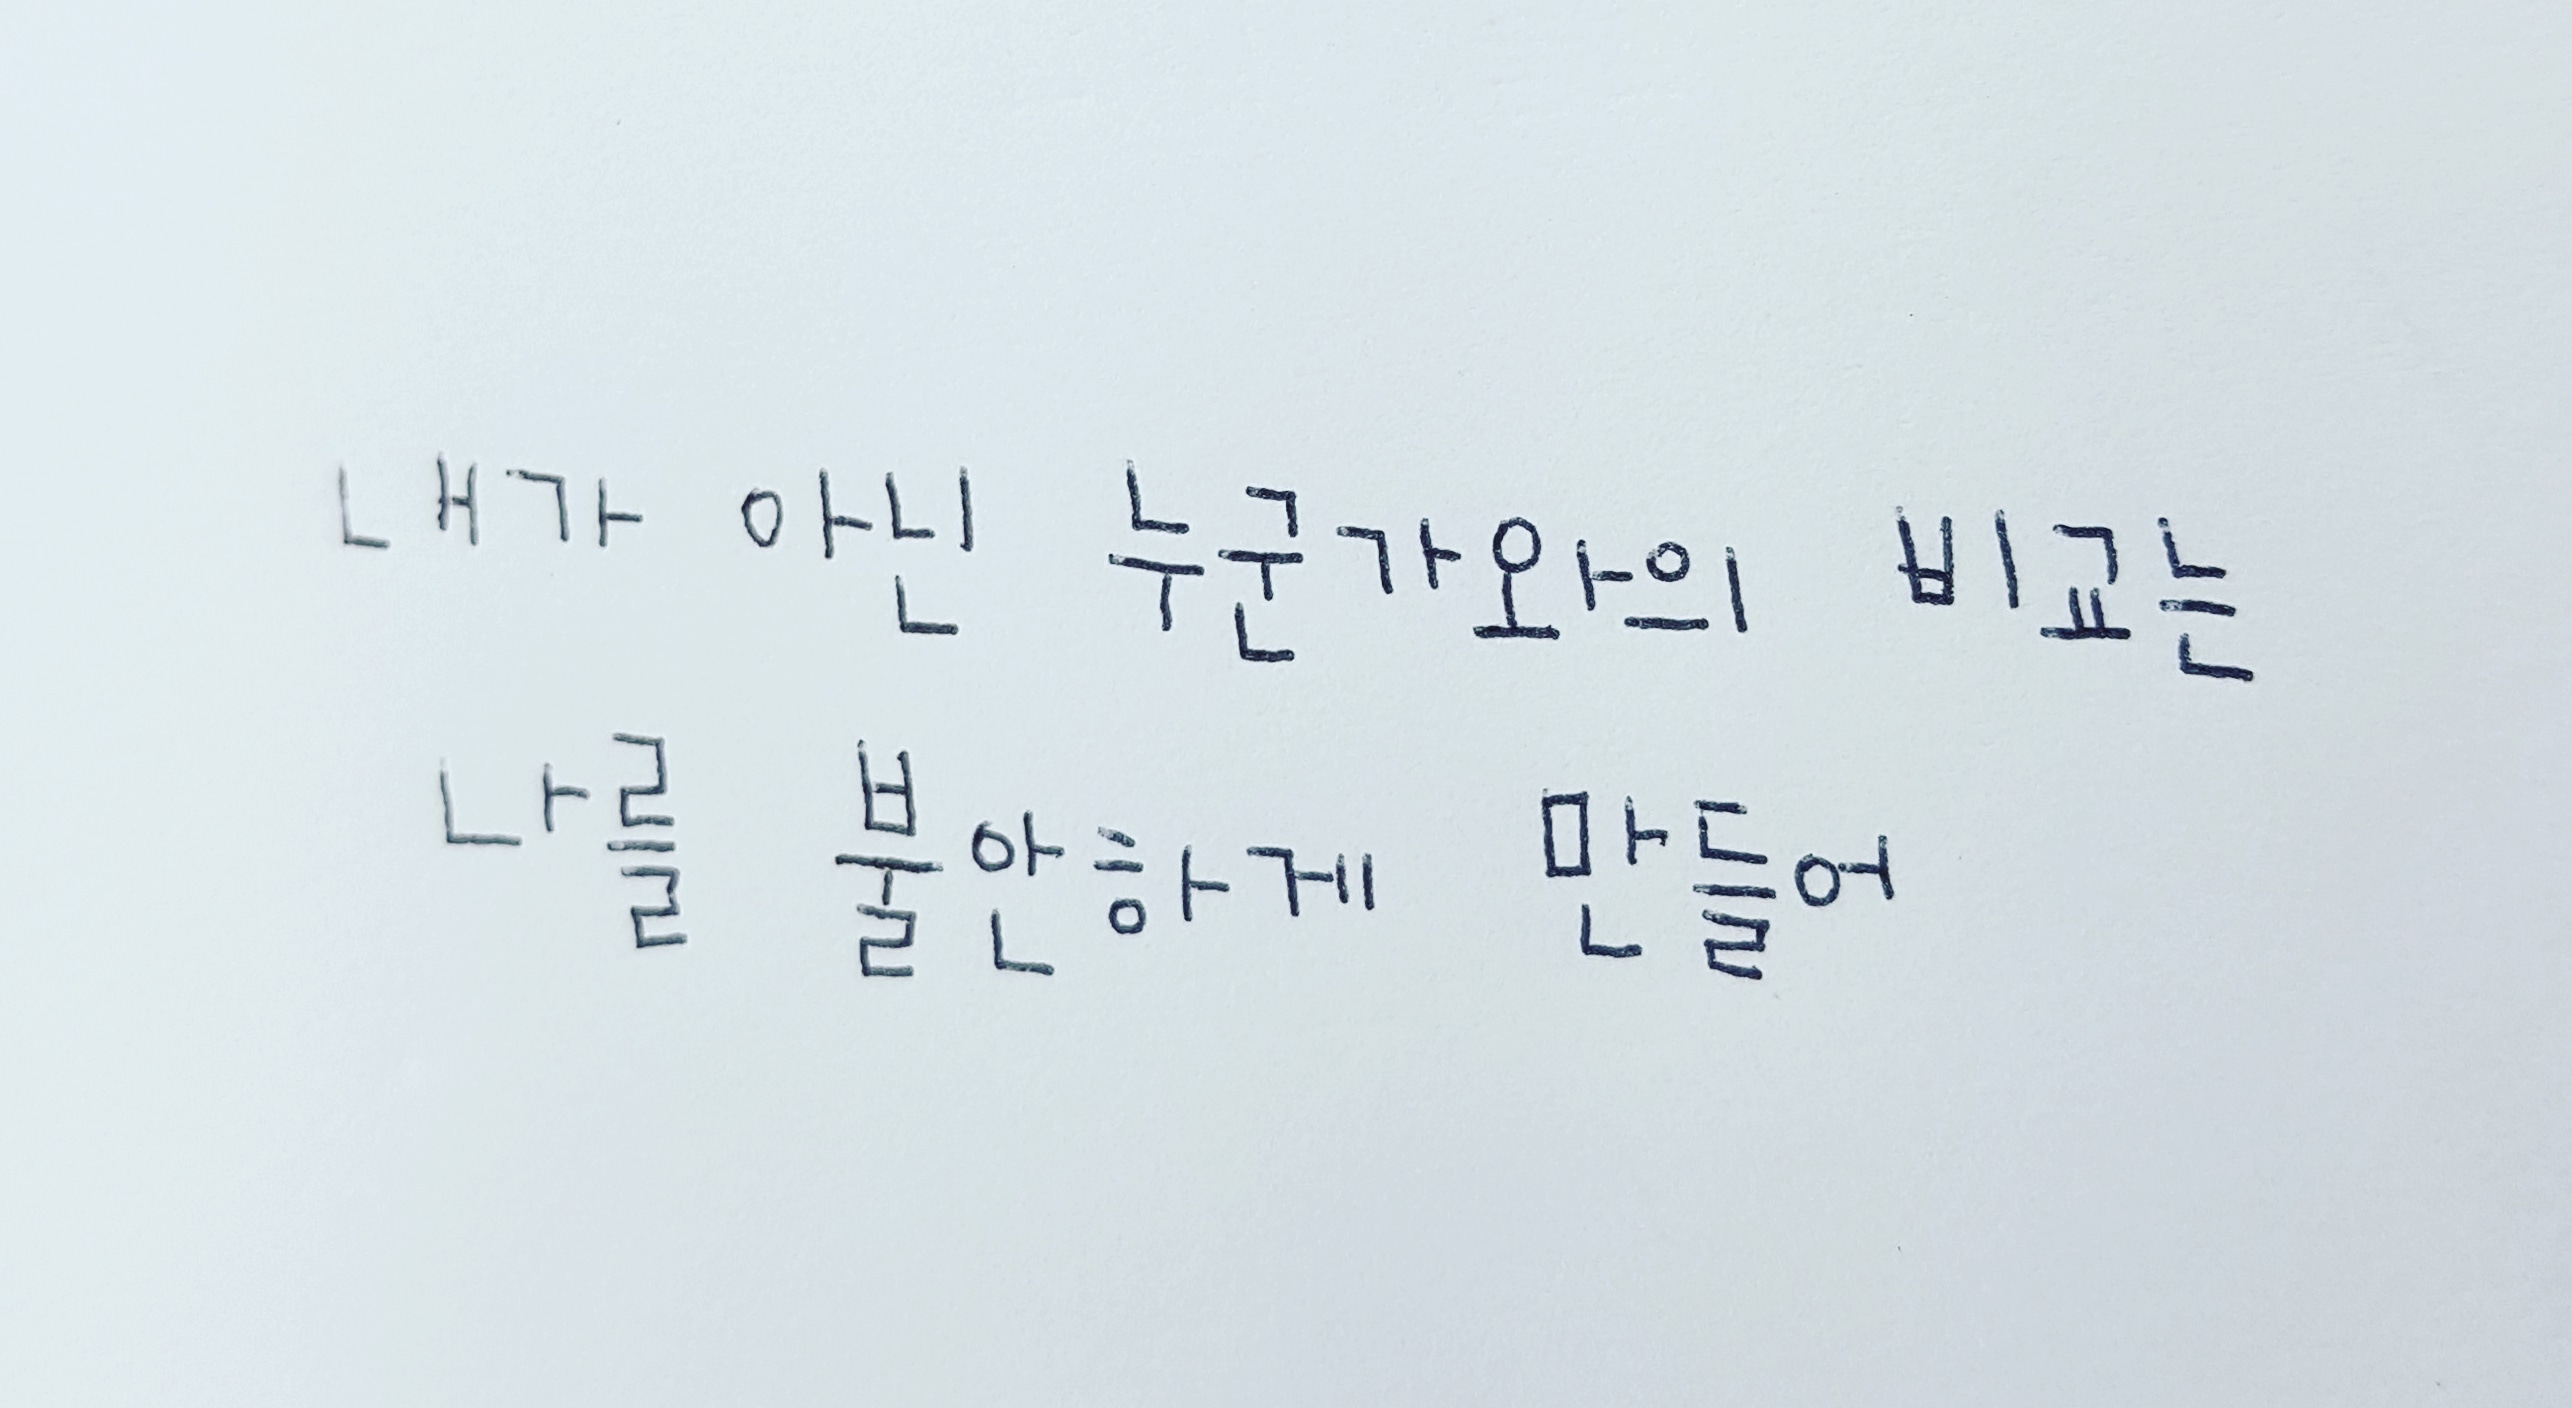 내가 아닌 누군가와의 비교는
나를 불안하게 만들어